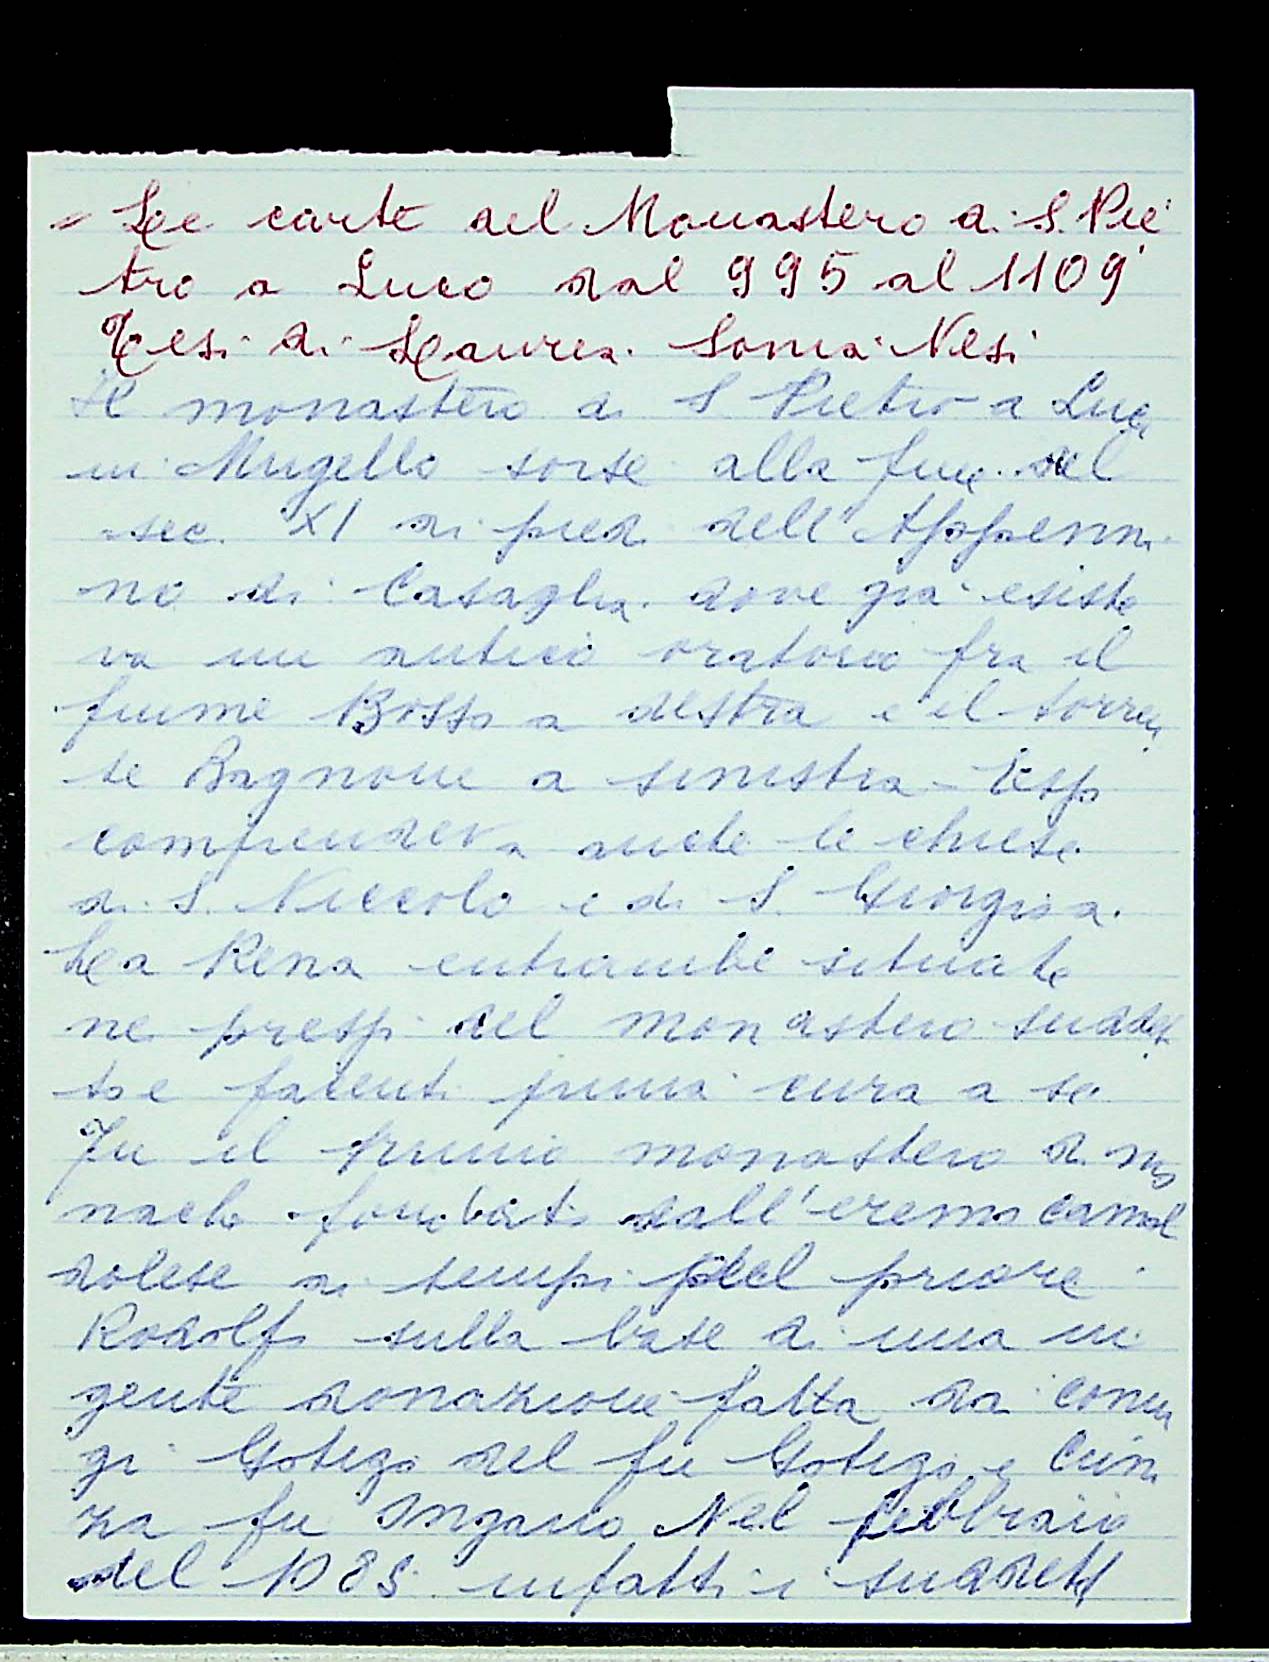 Le carte del Monastero di S. Pie
tro a Luco dal 995 al 1109
Tesi di Laurea Sonia Nesi
Il monastero di S Pietro a Luco
in Mugello sorse alla fine del
sec. XI ai piedi dell'Appenni
no di Casaglia dove già esiste
va un antico oratorio fra il
fiume Bosso a destra e il torren
te Bagnone a sinistra - Esso
comprendeva anche le chiese
di S. Niccolò e di S. Giorgio a
La Rena entrambe situate
nei pressi del monastero suddet
to e facenti prima cura a sé
Fu il primo monastero di mo
nache fondato dall'eremo camal
dolese ai tempi del priore
Rodolfo sulla base di una in
gente donazione fatta da coniu
gi Gotizo del fu Gotizo e Cuni
za fu Ingano Nel febbraio
del 1085 infatti i suddetti